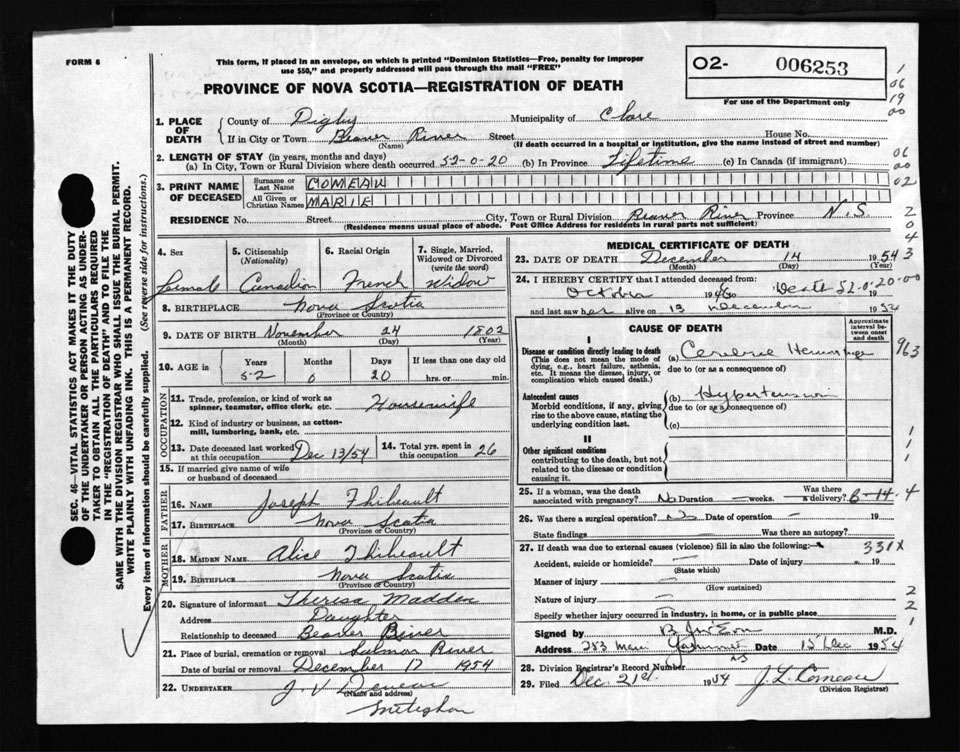 FORM 6
This form, if placed in an envelope, on which is printed "Dominion Statistics—Free, penalty for improper
use $50," and properly addressed will pass through the mail "FREE"
PROVINCE OF NOVA SCOTIA—REGISTRATION OF DEATH
O2- 006253
For use of the Department only
1. PLACE OF DEATH
County of Digby Municipality of Clare
If in City or Town Beaver River Street House No.
(Name) (If death occurred in a hospital or institution, give the name instead of street and number)
2. LENGTH OF STAY (in years, months and days)
(a) In City, Town or Rural Division where death occurred 52-0-20 (b) In Province Lifetime (c) In Canada (if immigrant)
3. PRINT NAME OF DECEASED
Surname or Last Name COMEAU
All Given or Christian Names MARIE
RESIDENCE No. Street City, Town or Rural Division Beaver River Province N.S.
(Residence means usual place of abode. Post Office Address for residents in rural parts not sufficient)
4. Sex
Female
5. Citizenship
(Nationality)
Canadian
6. Racial Origin
French
7. Single, Married,
Widowed or Divorced
(write the word)
Widow
8. BIRTHPLACE Nova Scotia
(Province or Country)
9. DATE OF BIRTH November 24 1802
(Month) (Day) (Year)
10. AGE in
Years Months Days If less than one day old
52 0 20 hrs. or min.
OCCUPATION
11. Trade, profession, or kind of work as
spinner, teamster, office clerk, etc. Housewife
12. Kind of industry or business, as cotton-
mill, lumbering, bank, etc.
13. Date deceased last worked
at this occupation Dec 13/54
14. Total yrs. spent in
this occupation 26
15. If married give name of wife
or husband of deceased
FATHER
16. NAME Joseph Thibeault
17. BIRTHPLACE Nova Scotia
(Province or Country)
MOTHER
18. MAIDEN NAME Alice Thibeault
19. BIRTHPLACE Nova Scotia
(Province or Country)
20. Signature of informant Theresa Madden
Address Daughter
Relationship to deceased Beaver River
21. Place of burial, cremation or removal Salmon River
Date of burial or removal December 17 1954
22. UNDERTAKER J. V Deveau
(Name and address)
Meteghan
MEDICAL CERTIFICATE OF DEATH
23. DATE OF DEATH December 14 1954
(Month) (Day) (Year)
24. I HEREBY CERTIFY that I attended deceased from:
October 1948 Death 19
and last saw her alive on 13 December 1954
CAUSE OF DEATH
Approximate
interval be-
tween onset
and death
I
Disease or condition directly leading to death
(This does not mean the mode of
dying, e.g., heart failure, asthenia,
etc. It means the disease, injury, or
complication which caused death.)
(a) Hemorrhage
due to (or as a consequence of)
Antecedent causes
Morbid conditions, if any, giving
rise to the above cause, stating the
underlying condition last.
(b) Hypertension
due to (or as consequence of)
(c)
II
Other significant conditions
contributing to the death, but not
related to the disease or condition
causing it.
25. If a woman, was the death
associated with pregnancy? No Duration — weeks. Was there
a delivery?
26. Was there a surgical operation? Date of operation — 19
State findings Was there an autopsy?
27. If death was due to external causes (violence) fill in also the following:—
331X
Accident, suicide or homicide? Date of injury 19
(State which)
Manner of injury
(How sustained)
Nature of injury
Specify whether injury occurred in industry, in home, or in public place
Signed by M.D.
Address 253 Main Date 15 Dec 1954
28. Division Registrar's Record Number
29. Filed Dec. 21st 1954 J. L. Comeau
(Division Registrar)
SEC. 46—VITAL STATISTICS ACT MAKES IT THE DUTY
OF THE UNDERTAKER OR PERSON ACTING AS UNDER-
TAKER TO OBTAIN ALL THE PARTICULARS REQUIRED
IN THE "REGISTRATION OF DEATH" AND TO FILE THE
SAME WITH THE DIVISION REGISTRAR WHO SHALL ISSUE THE BURIAL PERMIT.
WRITE PLAINLY WITH UNFADING INK. THIS IS A PERMANENT RECORD.
Every item of information should be carefully supplied. (See reverse side for instructions.)